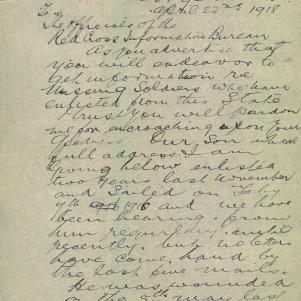 April 22nd 1918
To
The Officials of the
Red Cross Information Bureau
As you advertise that
you will endeavor to
get information re
Missing Soldiers who have
enlisted from this State
I trust you will pardon
me for encroaching upon your
Our Son whose
full address I am
giving below enlisted
two years last November
and Sailed on Feby
1916 and we have
been hearing from
him regularly until
recently. but no letters
have come to hand by
the last five mails.
He was wounded
on the 5th May last